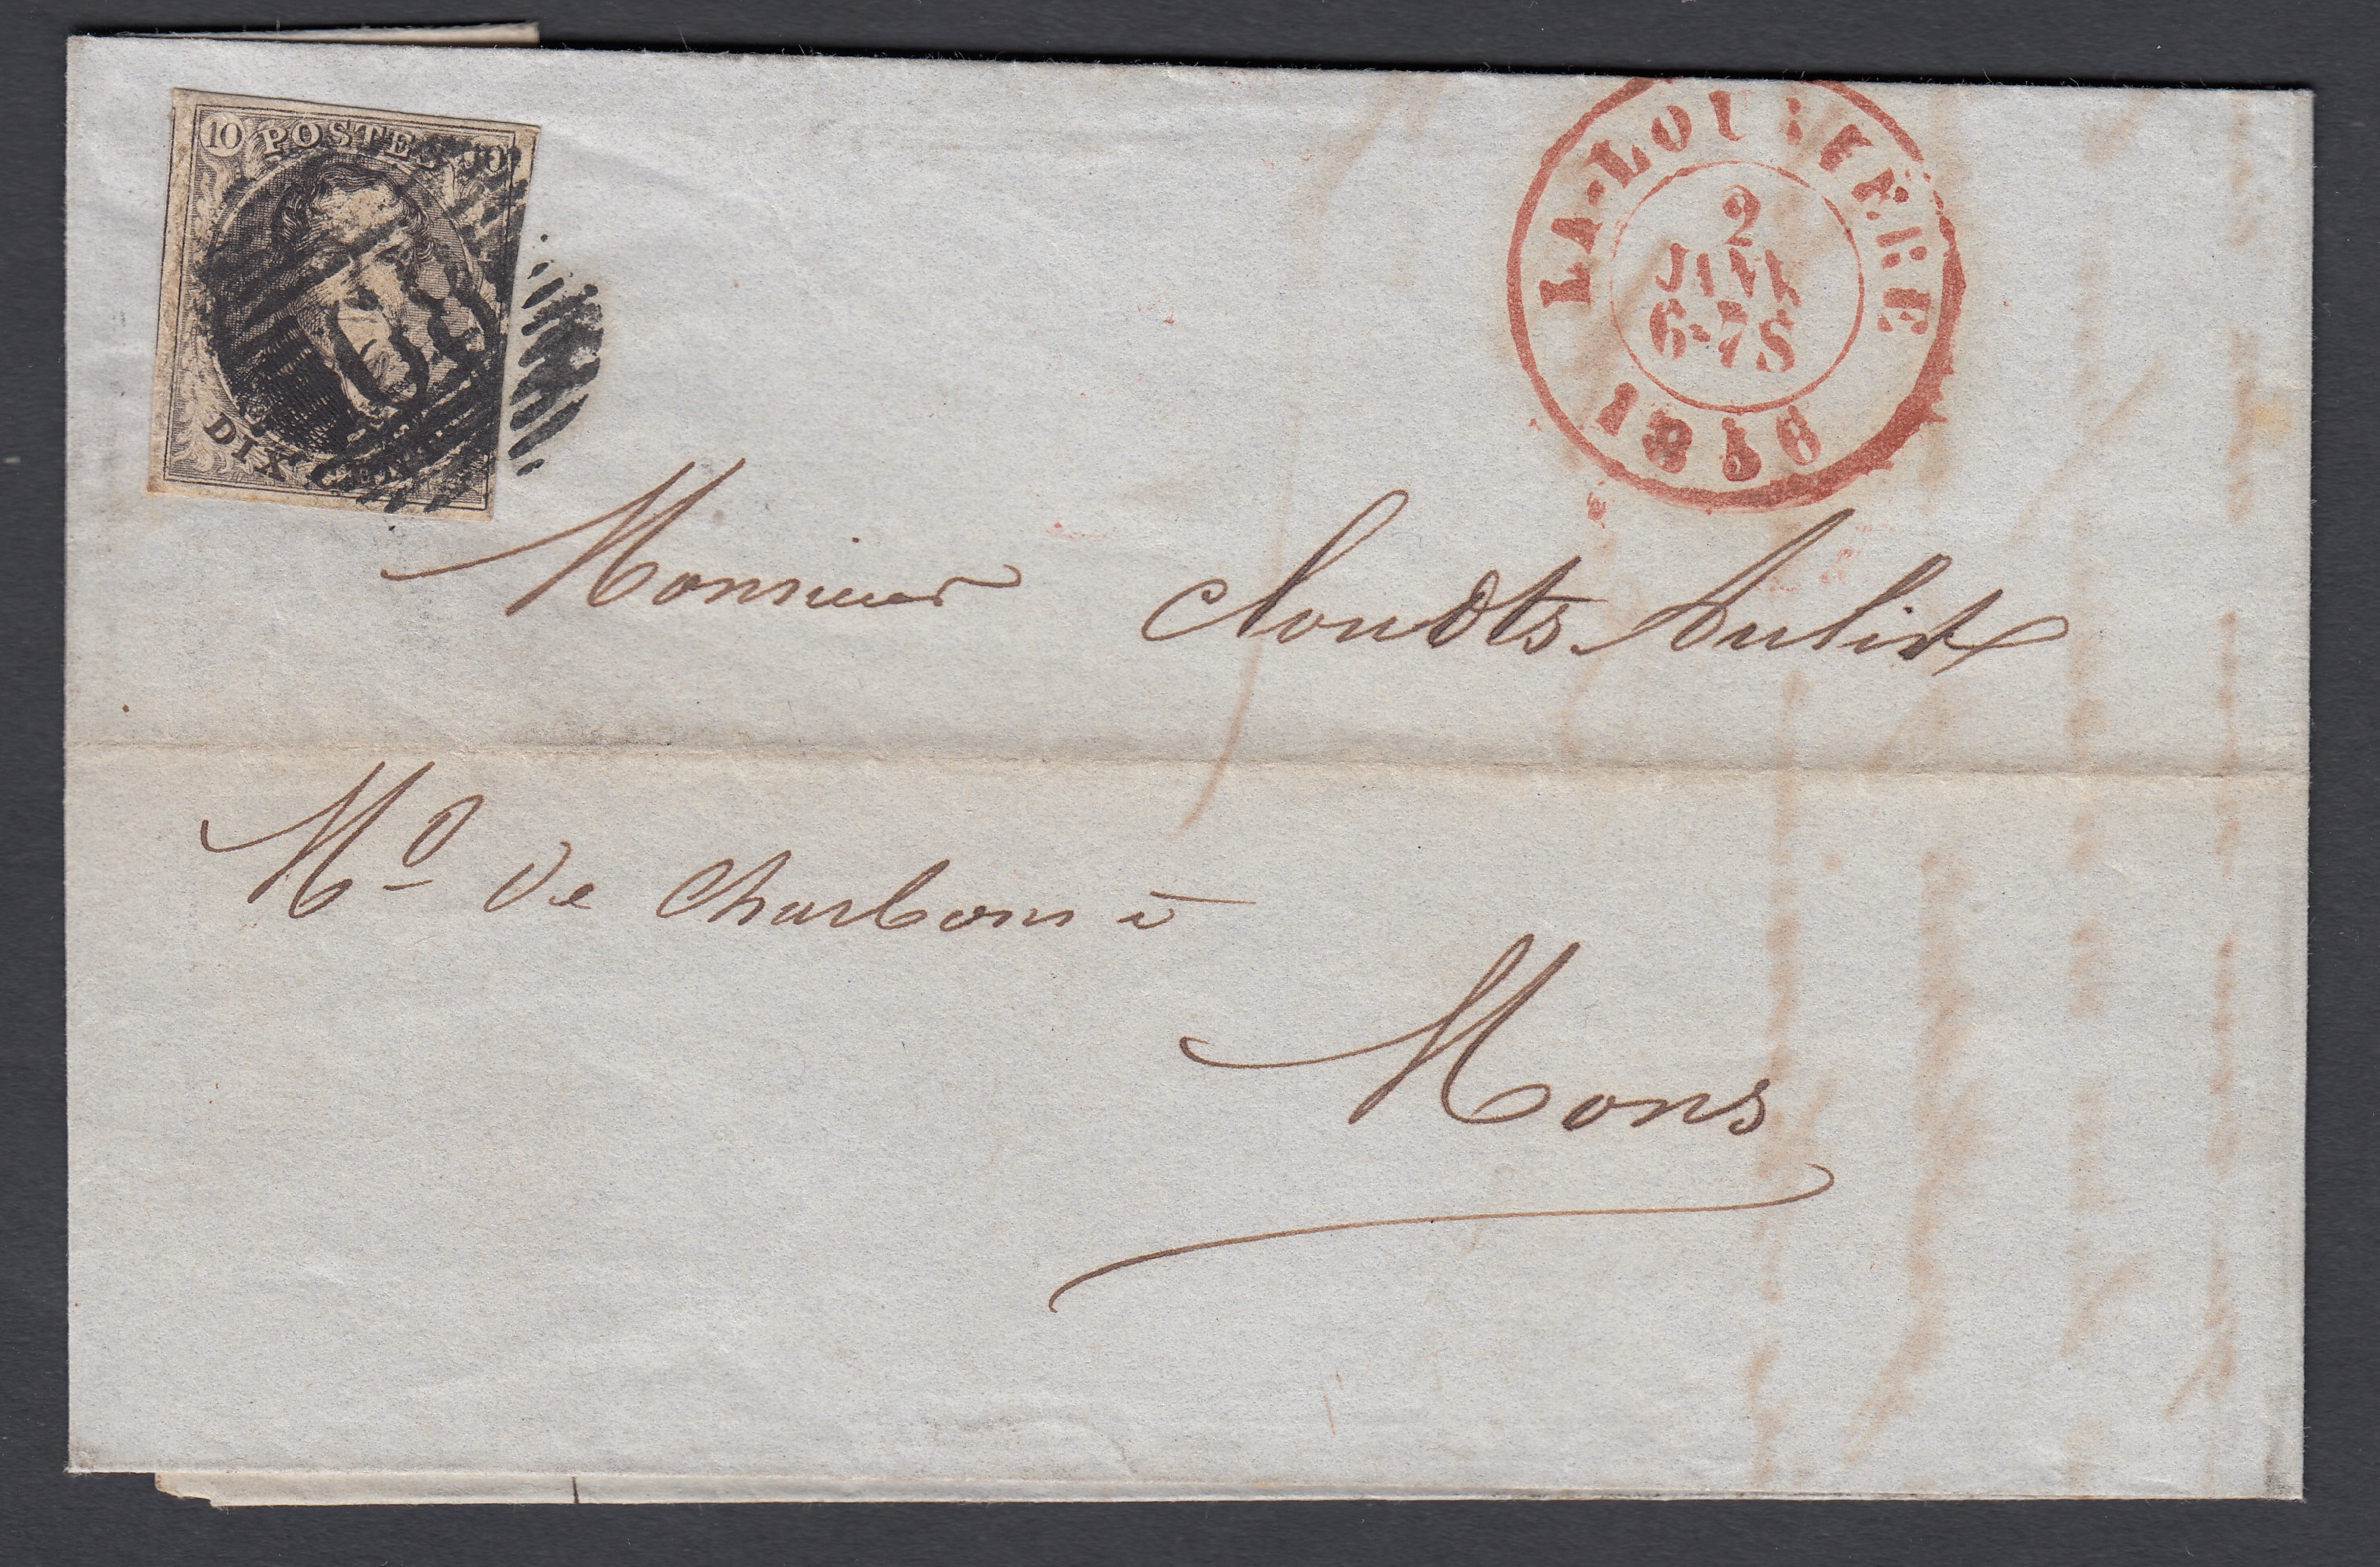 10 POSTES 10
DIX CEN
LA-LOUVIERE
2
JANV
6-7S
1856
Monsieur Cloudts
Md de Charbons à
Mons